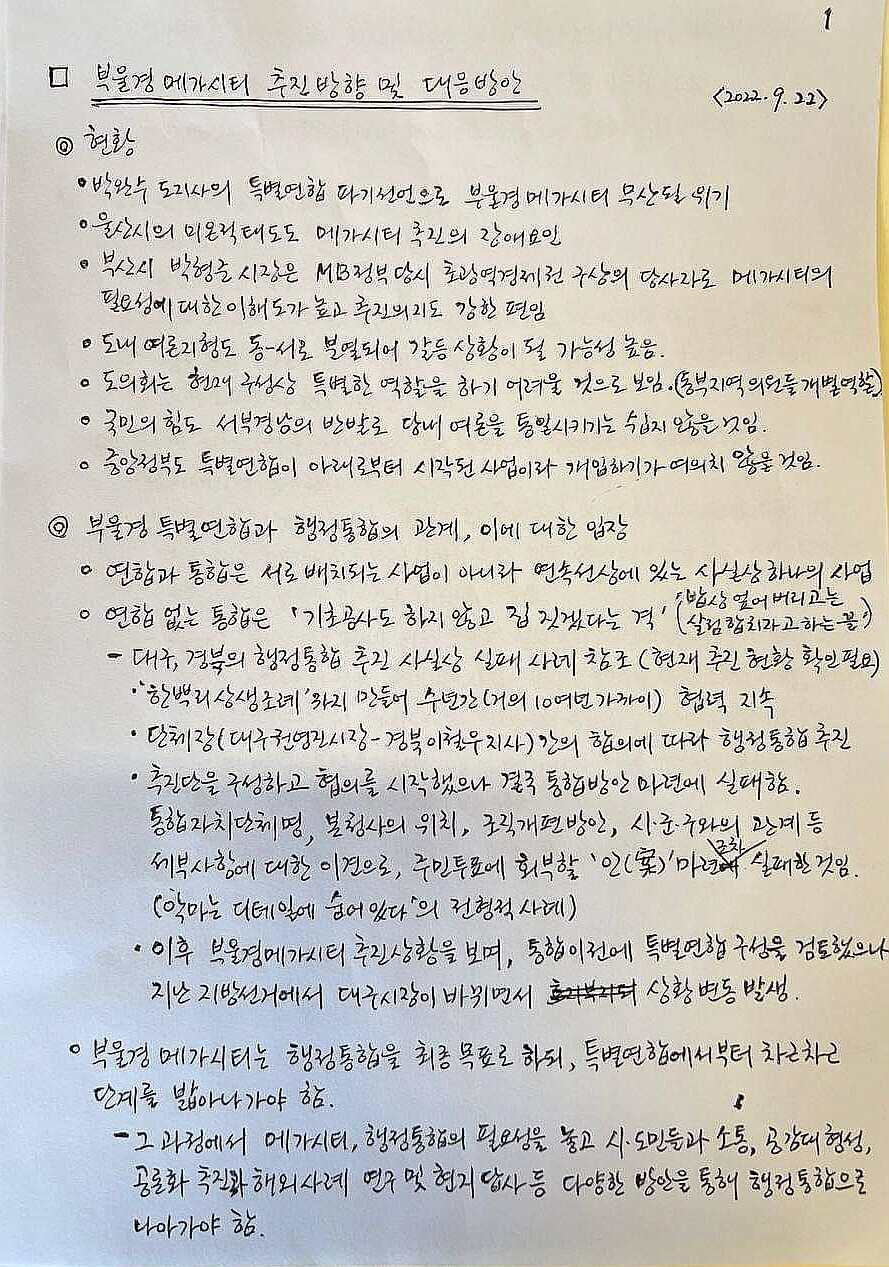 1
□ 부울경 메가시티 추진방향 및 대응방안
<2022. 9. 22>
◎ 현황
• 박완수 도지사의 특별연합 파기선언으로 부울경 메가시티 무산될 위기
• 울산시의 미온적 태도도 메가시티 추진의 장애요인
• 부산시 박형준 시장은 MB정부 당시 초광역경제권 구상의 당사자로 메가시티의
필요성에 대한 이해도가 높고 추진의지도 강한 편임
• 도내 여론지형도 동-서로 분열되어 갈등상황이 될 가능성 높음.
• 도의회는 현재 구성상 특별한 역할을 하기 어려울 것으로 보임. (동부지역 의원들 개별역할)
• 국민의 힘도 서부경남의 반발로 당내 여론을 통일시키기는 쉽지 않을 것임.
• 중앙정부도 특별연합이 아래로부터 시작된 사업이라 개입하기가 여의치 않을 것임.
◎ 부울경 특별연합과 행정통합의 관계, 이에 대한 입장
• 연합과 통합은 서로 배치되는 사업이 아니라 연속선상에 있는 사실상 하나의 사업
• 연합 없는 통합은 '기초공사도 하지 않고 집 짓겠다는 격' ('밥상 엎어버리고는
살림 합치자고 하는 꼴')
- 대구, 경북의 행정통합 추진 사실상 실패 사례 참조 (현재 추진 현황 확인 필요)
• '한뿌리상생조례'까지 만들어 수년간(거의 10여년 가까이) 협력 지속
• 단체장(대구 권영진 시장-경북 이철우 지사)간의 합의에 따라 행정통합 추진
• 추진단을 구성하고 협의를 시작했으나 결국 통합방안 마련에 실패함.
통합자치단체명, 본청사의 위치, 조직개편방안, 시·군·구와의 관계 등
세부사항에 대한 이견으로, 주민투표에 회부할 '안(案)' 마련조차 실패한 것임.
('악마는 디테일에 숨어있다'의 전형적 사례)
• 이후 부울경메가시티 추진상황을 보며, 통합 이전에 특별연합 구성을 검토했으나
지난 지방선거에서 대구시장이 바뀌면서 상황 변동 발생.
• 부울경 메가시티는 행정통합을 최종 목표로 하되, 특별연합에서부터 차근차근
단계를 밟아나가야 함.
- 그 과정에서 메가시티, 행정통합의 필요성을 놓고 시·도민들과 소통, 공감대 형성,
공론화 추진과 해외사례 연구 및 현지 답사 등 다양한 방안을 통해 행정통합으로
나아가야 함.